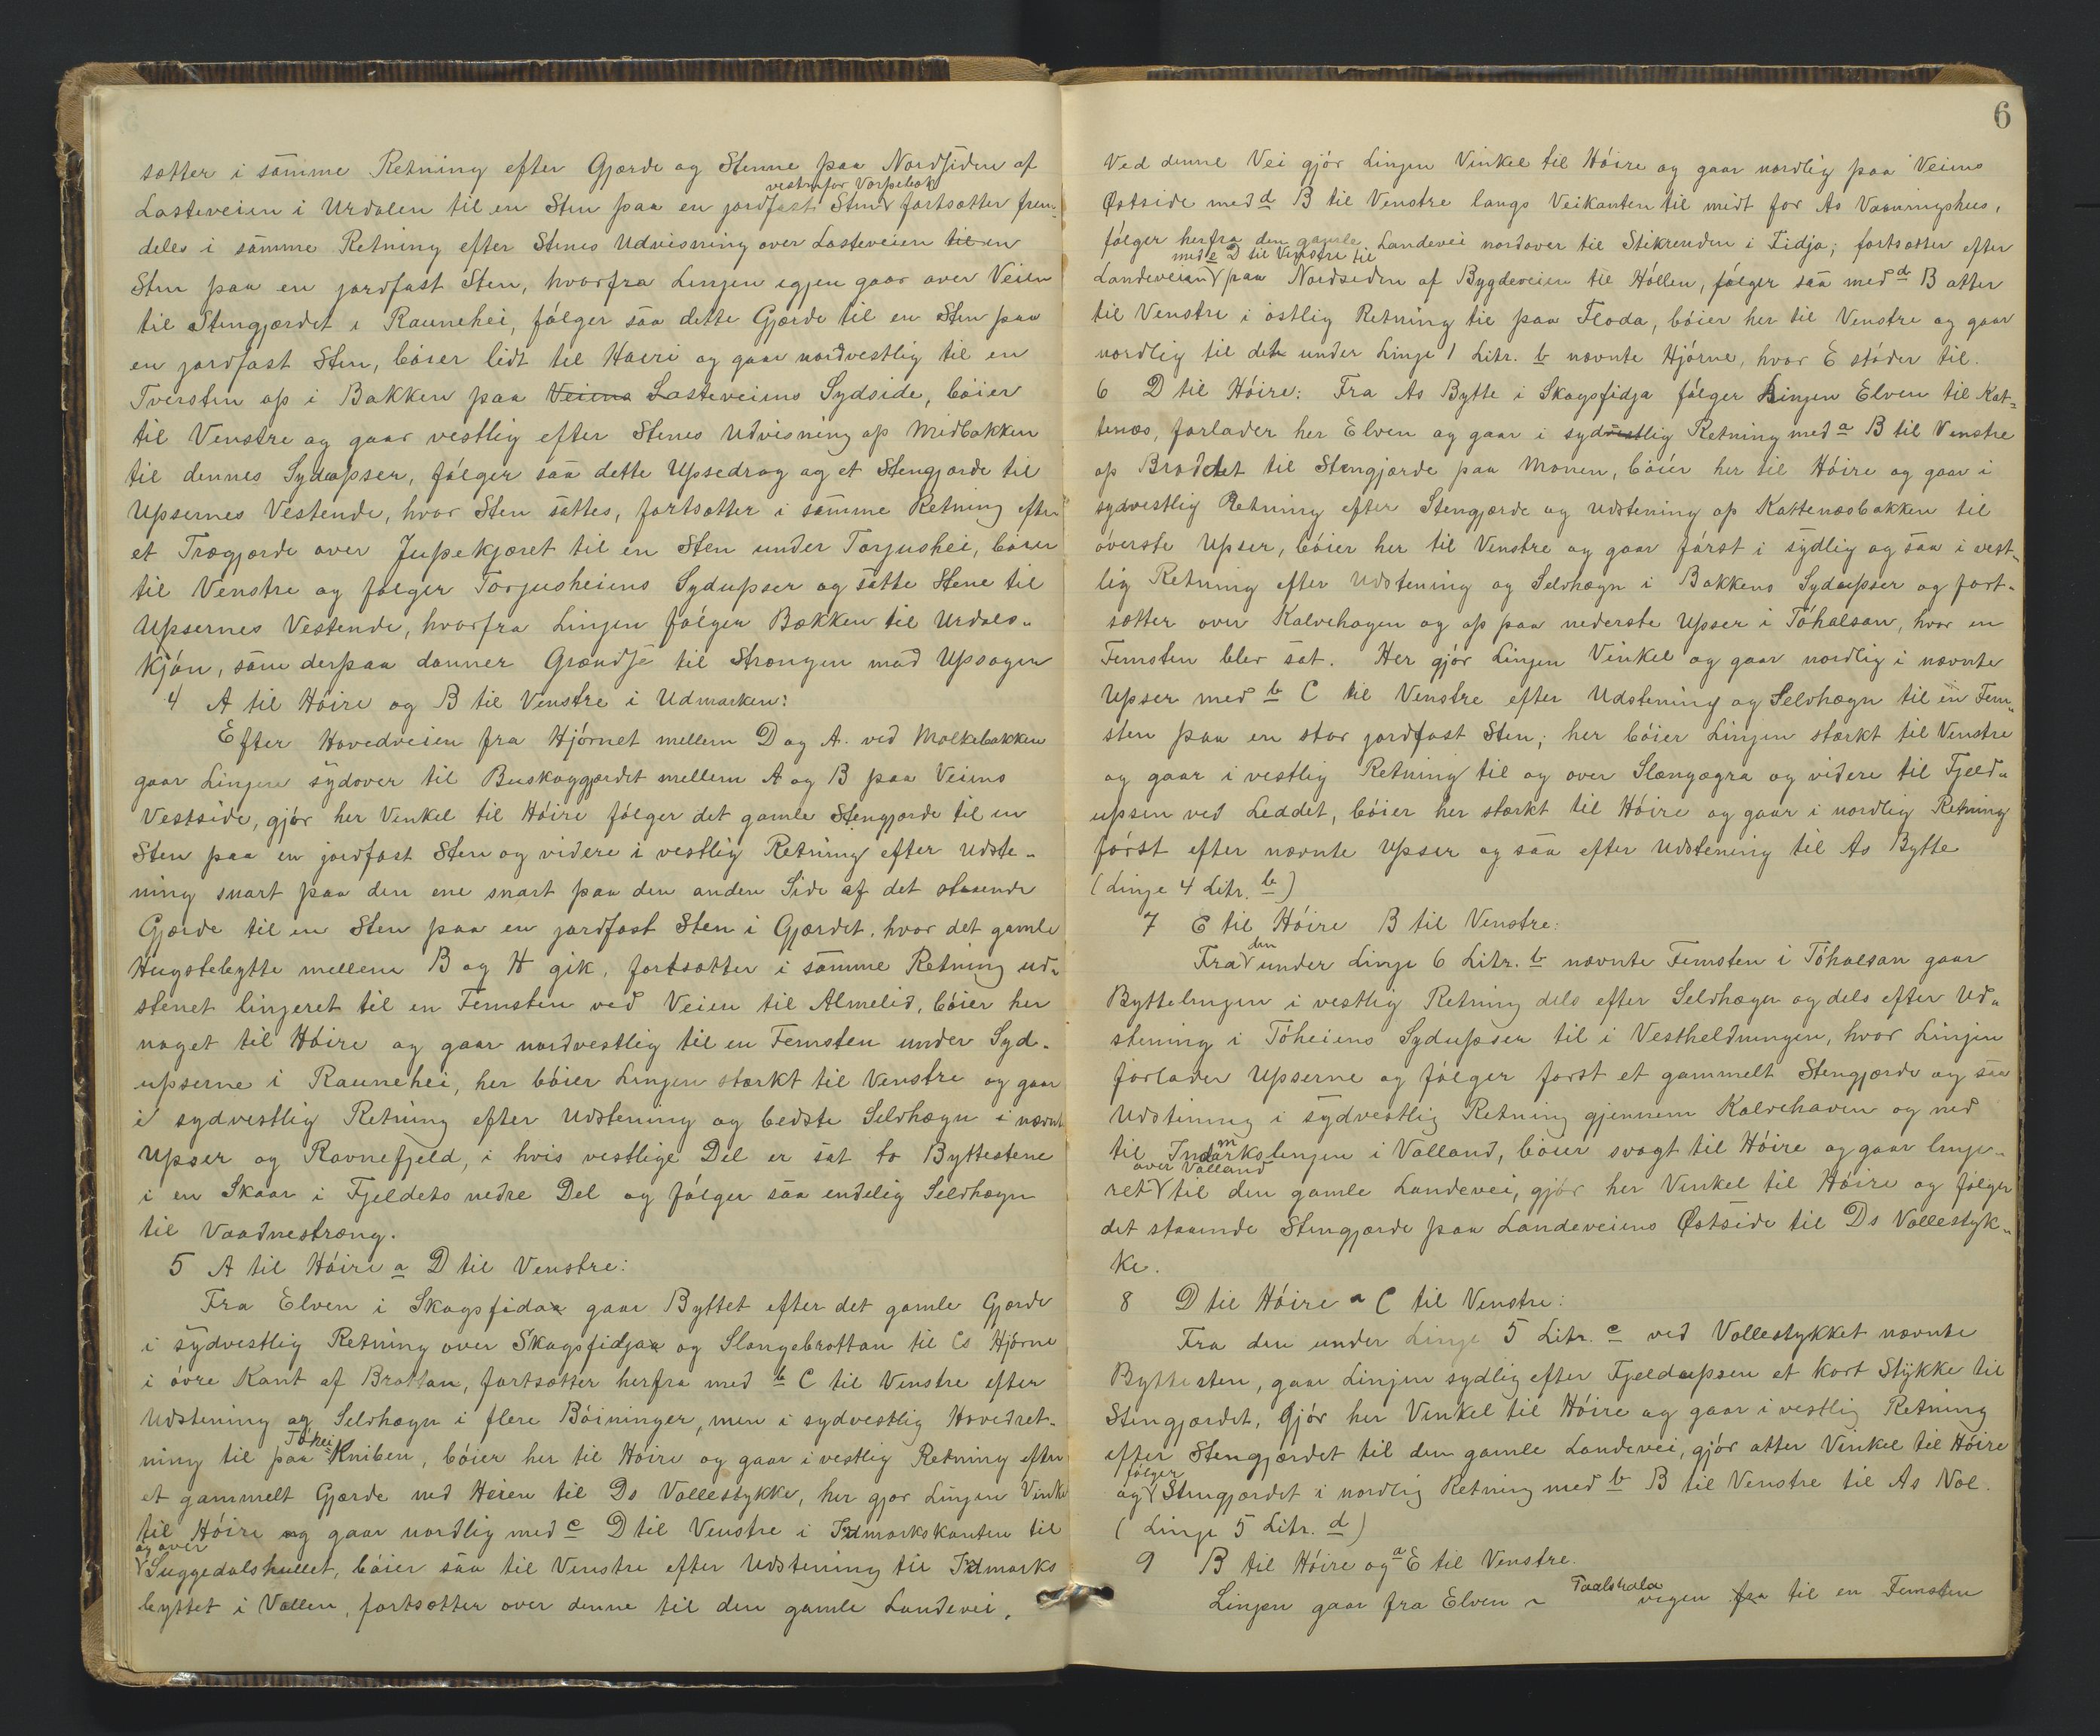 sætter i samme Retning efter Gjærde og Stenne paa Nordsiden af
vestenfor Vorpebæk
Lasteveien i Urdalen til en Sten paa en jordfast Sten fortsætter frem-
deles i samme Retning efter Stenes Udvisning over Lasteveien til en
Sten paa en jordfast Sten, hvorfra Linjen igjen gaar over Veien
til Stengjærdet i Raunehei, følger saa dette Gjærde til en Sten paa
en jordfast Sten, bøier lidt til Høiri og gaar nordvestlig til en
Tversten op i Bakken paa Veiens Lasteveiens Sydside, bøier
til Venstre og gaar vestlig efter Stenes Udvisning op Midbakken
til dennes Sydupser, følger saa dette Upsedrag og et Stengjærde til
Upsernes Vestende, hvor Sten sattes, fortsætter i samme Retning efter
et Trægjærde over Jupekjæret til en Sten under Torjushei, bøier
til Venstre og følger Torjusheiens Sydupser og satte Stene til
Upsernes Vestende, hvorfra Linjen følger Bækken til Urdals-
kjøn, som derpaa danner Grændse til Strængen mod Upsagen
4 A til Høire og B til Venstre i Udmarken:
Efter Hovedveien fra Hjørnet mellem D og A. ved Molkebakken
gaar Linjen sydover til Buskaggjærdet mellem A og B paa Veiens
Vestside, gjør her Vinkel til Høire følger det gamle Stengjærde til en
Sten paa en jordfast Sten og videre i vestlig Retning efter Udste-
ning snart paa den ene snart paa den anden Side af det staaende
Gjærde til en Sten paa en jordfast Sten i Gjærdet, hvor det gamle
Hugstebytte mellem B og H gik, fortsætter i samme Retning ud-
stenet linjeret til en Femsten ved Veien til Almelid, bøier her
noget til Høire og gaar nordvestlig til en Femsten under Syd-
upserne i Raunehei, her bøier Linjen stærkt til Venstre og gaar
i sydvestlig Retning efter Udstening og bedste Selvhægn i nævnt
Upser og Ravnefjeld, i hvis vestlige Del er sat to Byttestene
i en Skaar i Fjeldets nedre Del og følger saa endelig Selvhægn
til Vaadnestræng.
5 A til Høire a D til Venstre:
Fra Elven i Skogsfidaa gaar Byttet efter det gamle Gjærde
i sydvestlig Retning over Skogsfidjaa og Slangebrottan til Cs Hjørne
i øvre Kant af Brattan, fortsætter herfra med b C til Venstre efter
Udstening og Selvhægn i flere Bøininger, men i sydvestlig Hovedret-
Tøhei
ning til paa Kniben, bøier her til Høire og gaar i vestlig Retning efter
et gammelt Gjærde ned Heien til Ds Vollestykke, her gjør Linjen Vinkel
til Høire og gaar nordlig med c D til Venstre i Indmarkskanten til
og over
Suggedalshullet, bøier saa til Venstre efter Udstening til Indmarks
byttet i Vollen, fortsætter over denne til den gamle Landevei.
6
Ved denne Vei gjør Linjen Vinkel til Høire og gaar nordlig paa Veiens
Østside med d B til Venstre langs Veikanten til midt for As Vaaningshus,
følger herfra den gamle Landevei nordover til Stikrenden i Fidja; fortsætter efter
med e D til Venstre til
Landeveien paa Nordsiden af Bygdeveien til Høllen, følger saa med d B atter
til Venstre i østlig Retning til paa Floda, bøier her til Venstre og gaar
nordlig til det under Linje 1 Litr. b nævnte Hjørne, hvor E støder til.
6 D til Høire: Fra As Bytte i Skogsfidja følger Linjen Elven til Kat-
tenæs, forlader her Elven og gaar i sydvestlig Retning med a B til Venstre
op Braddet til Stengjærde paa Monen, bøier her til Høire og gaar i
sydvestlig Retning efter Stengjærde og Udstening op Kattenæsbakken til
øverste Upser, bøier her til Venstre og gaar først i sydlig og saa i vest-
lig Retning efter Udstening og Selvhægn i Bakkens Sydupser og fort-
sætter over Kalvehagen og op paa nederste Upser i Tøhalsan, hvor en
Femsten blev sat. Her gjør Linjen Vinkel og gaar nordlig i nævnte
Upser med b C til Venstre efter Udstening og Selvhægn til en Fem-
sten paa en stor jordfast Sten; her bøier Linjen stærkt til Venstre
og gaar i vestlig Retning til og over Slængægra og videre til Fjeld-
upsen ved Leddet, bøier her stærkt til Høire og gaar i nordlig Retning
først efter nævnte Upser og saa efter Udstening til As Bytte
(Linje 4 Litr. b)
7 E til Høire B til Venstre:
den
Fra under Linje 6 Litr. b nævnte Femsten i Tøhalsan gaar
Byttelinjen i vestlig Retning dels efter Selvhægn og dels efter Ud-
stening i Tøheiens Sydupser til i Vestheldningen, hvor Linjen
forlader Upserne og følger først et gammelt Stengjærde og saa
Udstening i sydvestlig Retning gjennem Kalvehaven og ned
til Indmarkslinjen i Volland, bøier svagt til Høire og gaar linje-
over Volland
ret til den gamle Landevei, gjør her Vinkel til Høire og følger
det staaende Stengjærde paa Landeveiens Østside til Ds Vollestyk-
ke.
8 D til Høire a C til Venstre:
Fra den under Linje 5 Litr. c ved Vollestykket nævnte
Byttesten, gaar Linjen sydlig efter Fjeldupsen et kort Stykke til
Stengjærdet, gjør her Vinkel til Høire og gaar i vestlig Retning
efter Stengjærdet til den gamle Landevei, gjør atter Vinkel til Høire
følger
og Stengjærdet i nordlig Retning med b B til Venstre til As Vol.
(Linje 5 Litr. d)
9 B til Høire og a E til Venstre.
Linjen gaar fra Elven Taalshala vegen fra til en Femsten